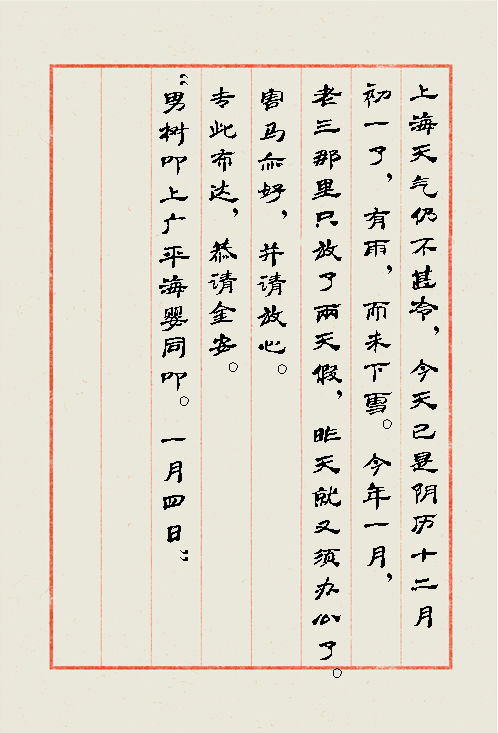 上海天气仍不甚冷，今天已是阴历十二月
初一了，有雨，而未下雪。今年一月，
老三那里只放了两天假，昨天就又须办公了。
害马亦好，并请放心。
专此布达，恭请金安。
“男树叩上广平海婴同叩。一月四日”